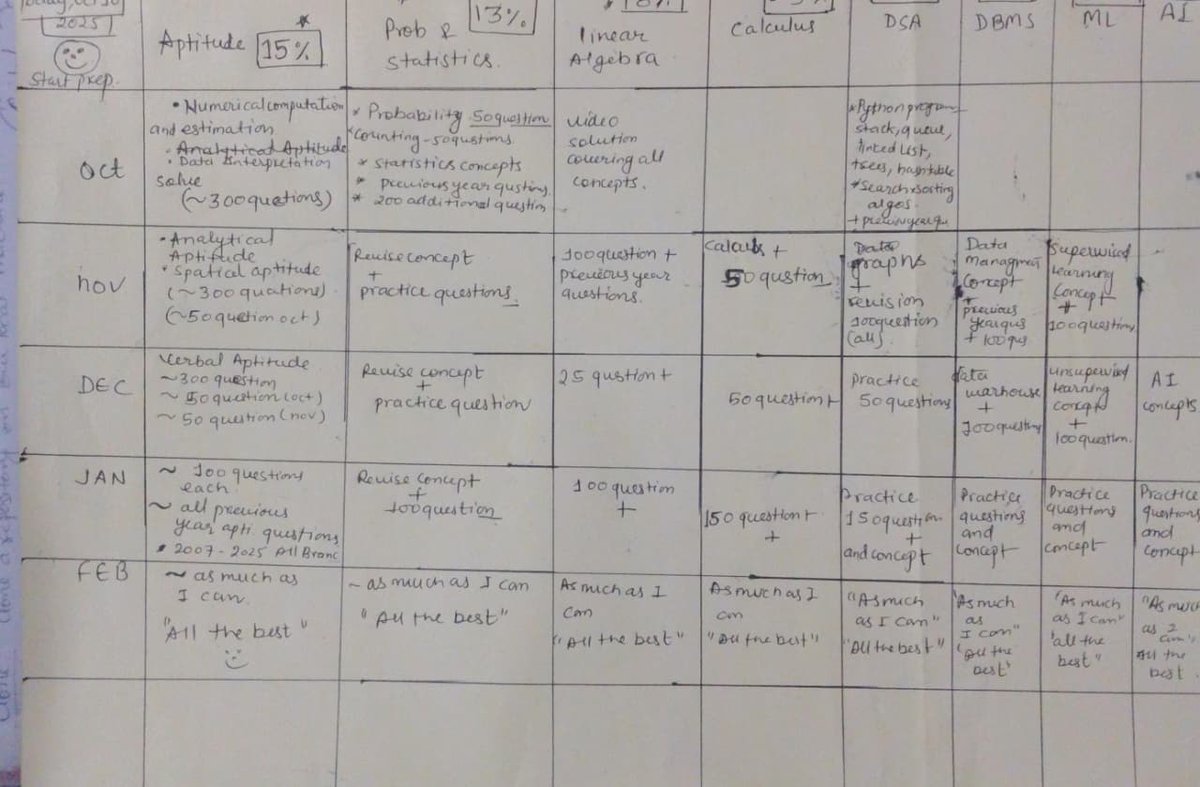 2025
Start prep.
Aptitude 15%
Prob &
Statistics.
13%
linear
Algebra
Calculus
DSA
DBMS
ML
AI
Oct
• Numerical computation
and estimation
• Analytical Aptitude
• Data Interpretation
solve
(~300 quetions)
* Probability 50 question
* Counting - 50 qustions.
* Statistics concepts
* previous year qustins
* 200 additional question
video
solution
covering all
concepts.
* Python program
stack, queue,
linked List,
trees, hashtable
* Search & sorting
algos.
+ previous year qu
nov
• Analytical
Aptitude
* Spatial aptitude
(~300 quations)
(~50 quetion oct)
Revise concept
+
practice questions.
100 question +
previous year
questions.
Calculs +
50 qustion
Data
graphs
+
revision
100 question
(all)
Data
Managment
Concept
+
previous
year qus
+ 100 qus
Supervised
learning
Concept
+
100 question
DEC
Verbal Aptitude
~300 question
~ 50 question (oct)
~ 50 question (nov)
Revise concept
+
practice question
25 qustion +
50 question +
practice
50 questions
data
warhouse
+
100 questins
unsupervised
learning
concept
+
100 question.
AI
concepts
JAN
~ 100 questions
each
~ all previous
year apti questions
* 2007-2025 All Branc
Revise concept
+
100 question
100 question
+
150 question +
+
Practice
150 question
+
and concept
Practice
questions
and
concept
Practice
questions
and
concept
Practice
questions
and
concept
FEB
~ as much as
I can
"All the best"
~ as much as I can
"All the best"
As much as I
can
"All the best"
As much as I
can
"All the best"
"As much
as I can"
"All the best"
"As much
as
I can"
"All the
best"
"As much
as I can"
"all the
best"
"As much
as I
can"
All the
best